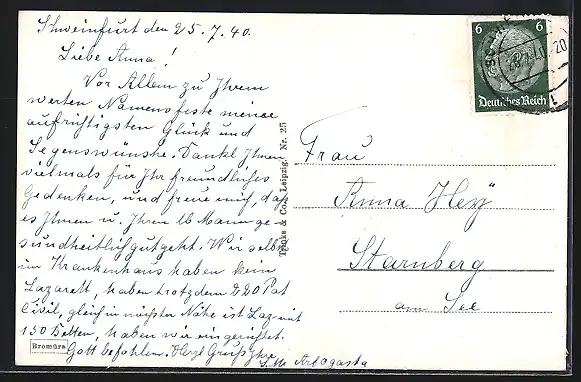 Schweinfurt den 25.7.40.
Liebe Anna!
Vor Allem zu Ihrem
werten Namensfeste meine
aufrichtigsten Glück und
Segenswünsche. Danke Ihnen
vielmals für Ihr freundliches
Gedenken, und freue mich, daß
es Ihnen u. Ihrem lb Mann ge-
sundheitlich gutgeht. Wir selbst
im Krankenhaus haben kein
Lazarett, haben trotzdem 220 Pat
Civil, gleich in nächster Nähe ist Laz. mit
150 Betten, haben wir eingerichtet.
Gott befohlen. Herzl Grüße Ihre
S. M. Arbogasta
Bromüra
Trinks & Co., Leipzig. Nr. 25
6 6
Deutsches Reich
Frau
Anna Hey
Starnberg
am See